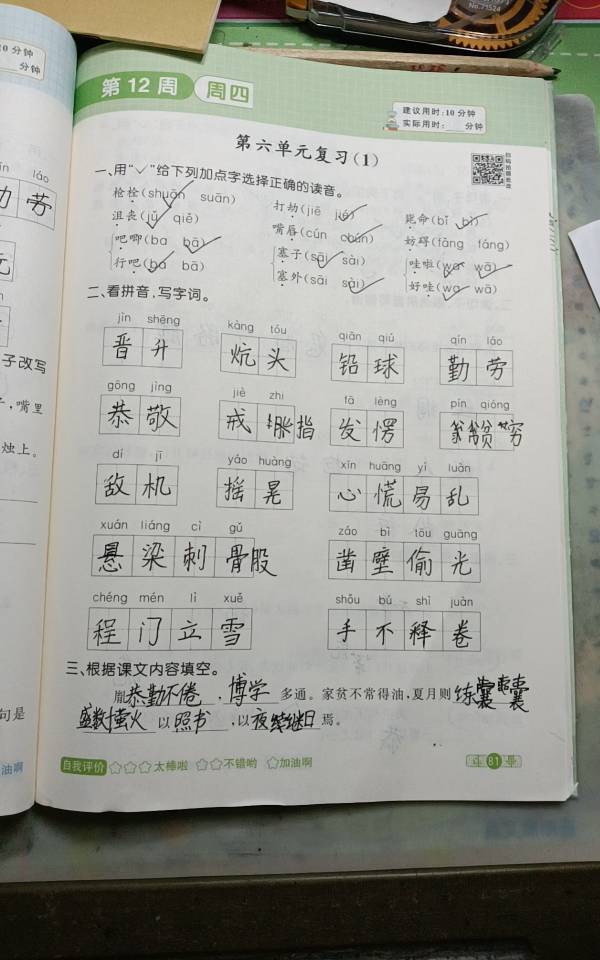 No.71524
10分钟
分钟
第12周 周四
建议用时:10分钟
实际用时:____分钟
第六单元复习(1)
扫码拍照批改
一、用“✓”给下列加点字选择正确的读音。
枪栓(shuān suān) 打劫(jiē jié) 毙命(bī bì)
沮丧(jǔ qiě) 嘴唇(cún chún) 妨碍(fāng fáng)
吧唧(ba bā) 塞子(sāi sài) 哇啦(wa wā)
行吧(ba bā) 塞外(sāi sài) 好哇(wa wā)
二、看拼音,写字词。
jìn shēng kàng tóu qiān qiú qín láo
晋升 炕头 铅球 勤劳
gōng jìng jiè zhi fā lèng pín qióng
恭敬 戒指 发愣 贫穷
dí jī yáo huàng xīn huāng yì luàn
敌机 摇晃 心慌易乱
xuán liáng cì gǔ záo bì tōu guāng
悬梁刺骨股 凿壁偷光
chéng mén lì xuě shǒu bú shì juàn
程门立雪 手不释卷
三、根据课文内容填空。
胤恭勤不倦,博学多通。家贫不常得油,夏月则练囊
盛数十萤火以照书,以夜继日焉。
自我评价 ☆☆☆太棒啦 ☆☆不错哟 ☆加油啊
81
láo
劳
子改写
嘴里
烛上。
句是
油啊